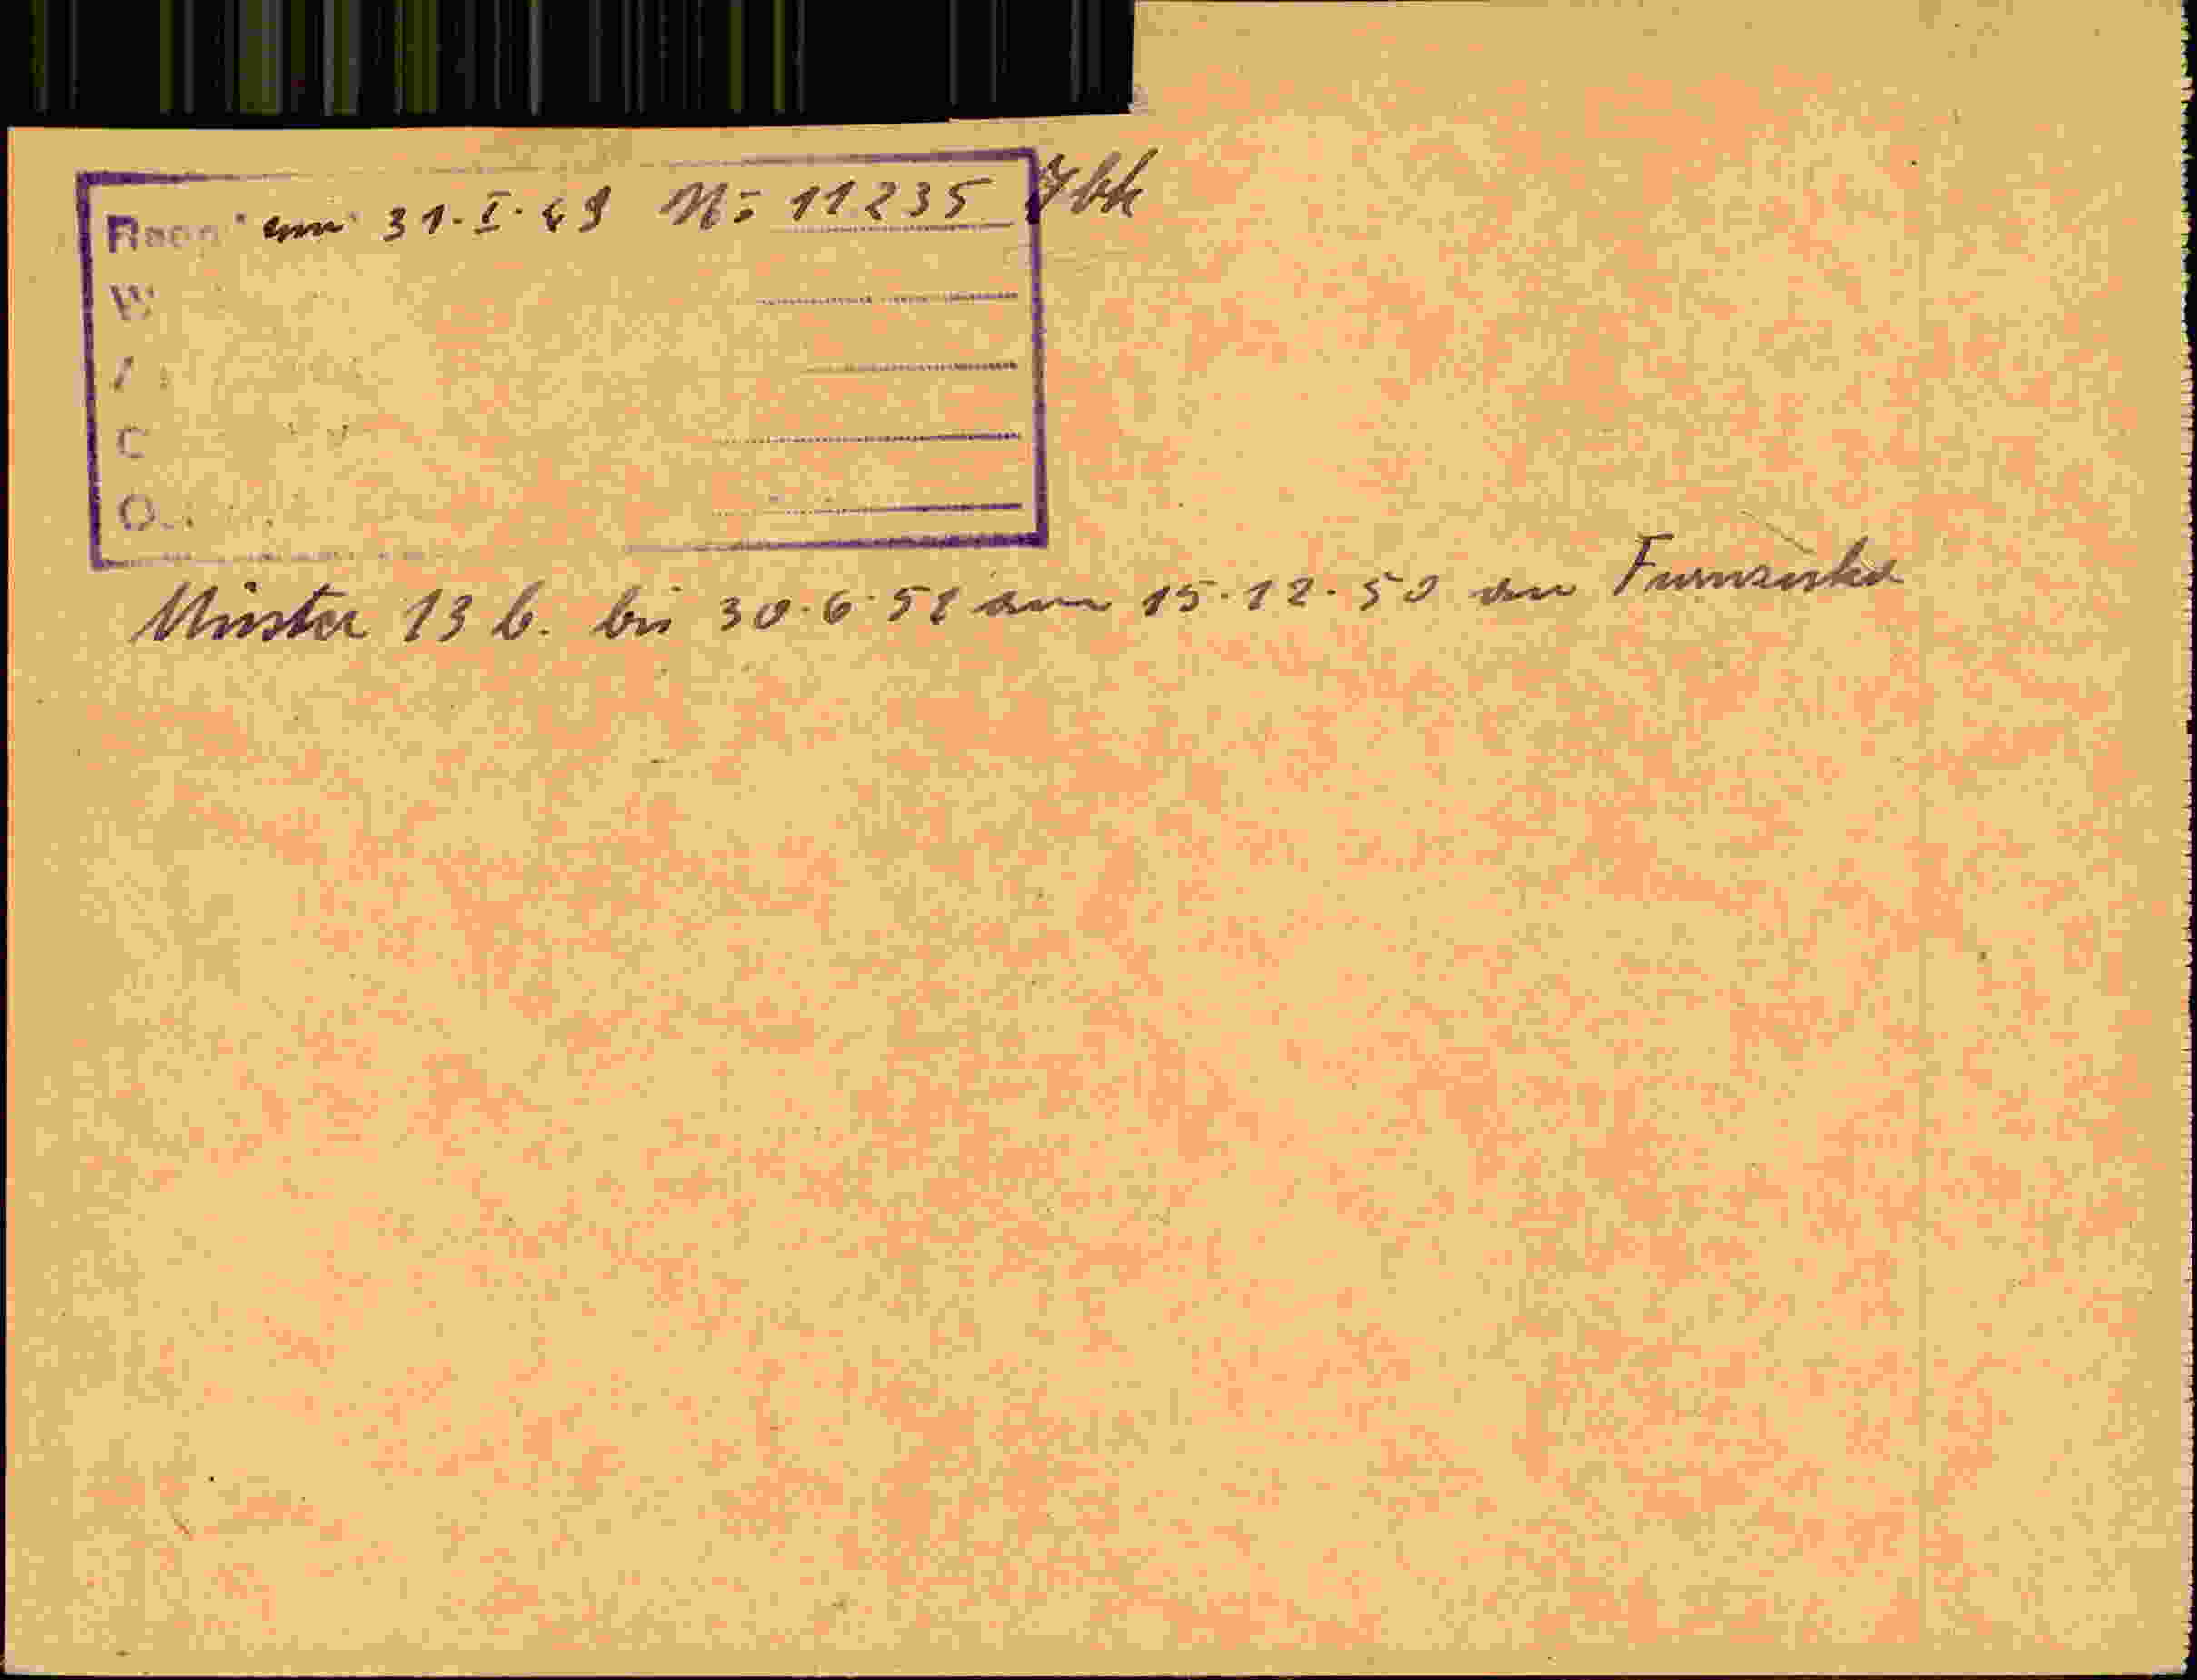 am 31.I.49 No 11235
W
C
O
Muster 13 b. bis 30.6.51 am 15.12.50 an Franziska